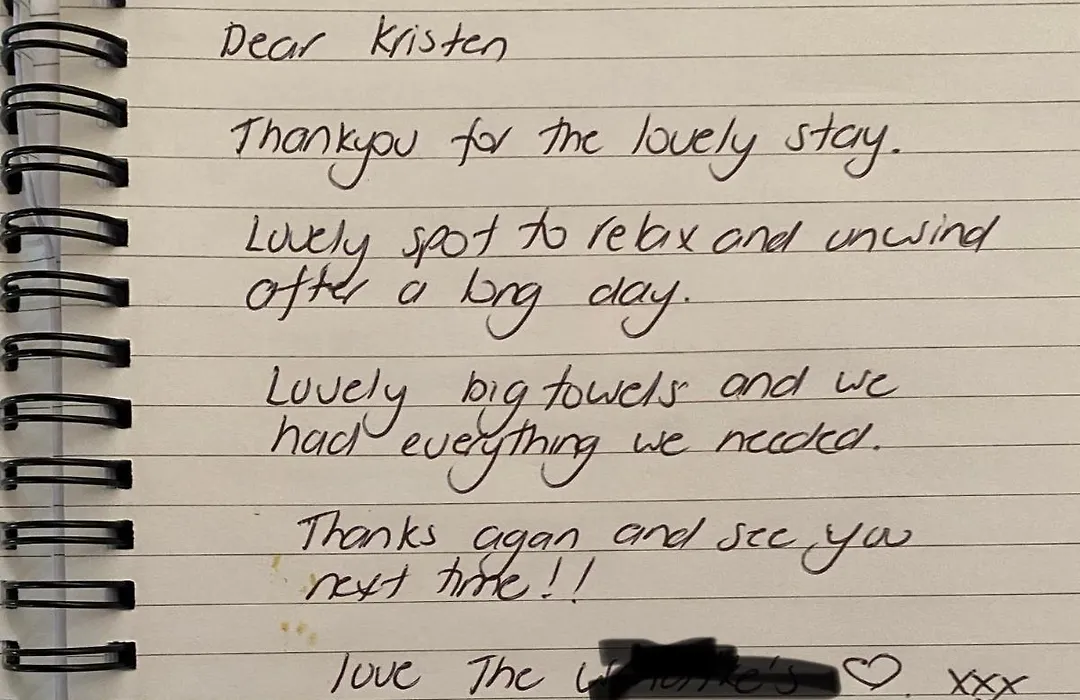 Dear Kristen
Thankyou for the lovely stay.
Lovely spot to relax and unwind
after a long day.
Lovely big towels and we
had everything we needed.
Thanks agan and see you
next time!!
love The ♡ xxx